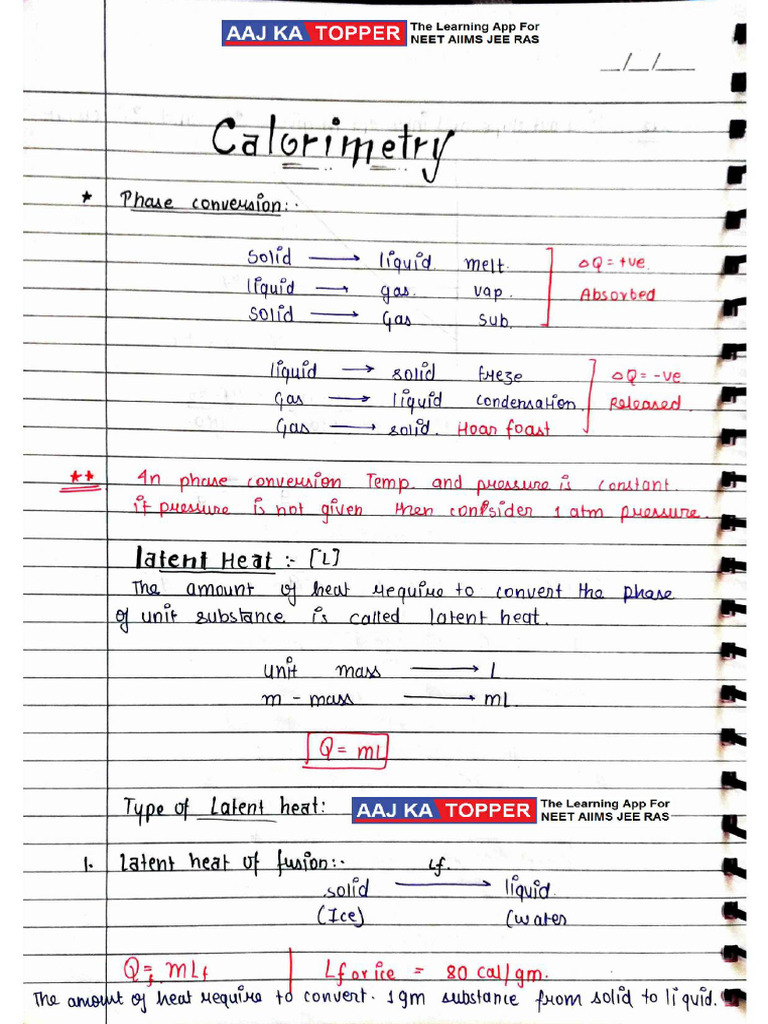 AAJ KA TOPPER The Learning App For NEET AIIMS JEE RAS
__/__/____
Calorimetry
* Phase conversion:-
Solid → liquid melt.
liquid → gas. vap.
Solid → Gas sub.
ΔQ = +ve.
Absorbed
liquid → solid freze
Gas → liquid condensation.
Gas → solid. Hoar foast
ΔQ = -ve
Released.
** In phase conversion Temp. and pressure is constant.
if pressure is not given then consider 1 atm pressure.
latent Heat :- [L]
The amount of heat require to convert the phase
of unit substance is called latent heat.
unit mass → L
m - mass → mL.
Q = mL
Type of Latent heat: AAJ KA TOPPER The Learning App For NEET AIIMS JEE RAS
1. Latent heat of fusion:- Lf.
solid → liquid.
(Ice) (water
Q = mLf | Lf or ice = 80 cal/gm.
The amount of heat require to convert. 1gm substance from solid to liquid.